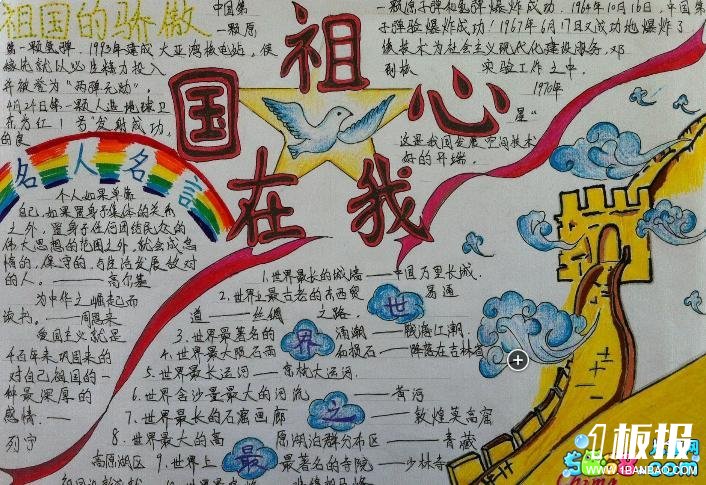 祖国的骄傲
中国第
一颗原
一颗原子弹和氢弹爆炸成功. 1964年10月16日,中国第
子弹验爆炸成功!1967年6月17日又成功地爆炸了
第一颗氢弹. 1993年建成大亚湾核电站, 使
核技术为社会主义现代化建设服务. 邓
稼先就以必生精力投入
实验工作之中.
并被誉为“两弹元勋”.
1970年
4月24日第一颗人造地球卫
星”
东方红1号”发射成功,
这是我国发展空间技术
的良
好的开端.
祖国在我心
名人名言
一个人如果单靠
自己,如果置身于集体的关系
之外, 置身于任何团结民众的
伟大思想的范围之外, 就会成怠
惰的, 保守的, 与生活发展敌对
的人. ——高尔基
为中华之崛起而
读书. ——周恩来
爱国主义就是
千百年来巩固来的
对自己祖国的一
种最深厚的
感情. ——
列宁
世界之最
1.世界最长的城墙——中国万里长城.
2.世界上最古老的东西贸易通
道——丝绸之路.
3.世界最著名的涌潮——钱塘江潮.
4.世界最大陨石雨和陨石——降落在吉林省
5.世界最长运河——京杭大运河.
6.世界含沙量最大的河流——黄河
7.世界最长的石窟画廊——敦煌莫高窟
8.世界最大的高原湖泊群分布区——青藏
高原湖区
9.世界上最著名的寺院——少林寺
China
1板报
WWW.1BANBAO.COM